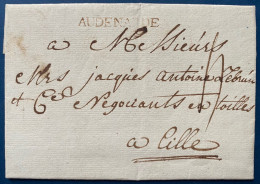 AUDENARDE
a Messieurs
Mrs jacques antoine Lebrun
et Ce Negotiants en toilles
a Lille